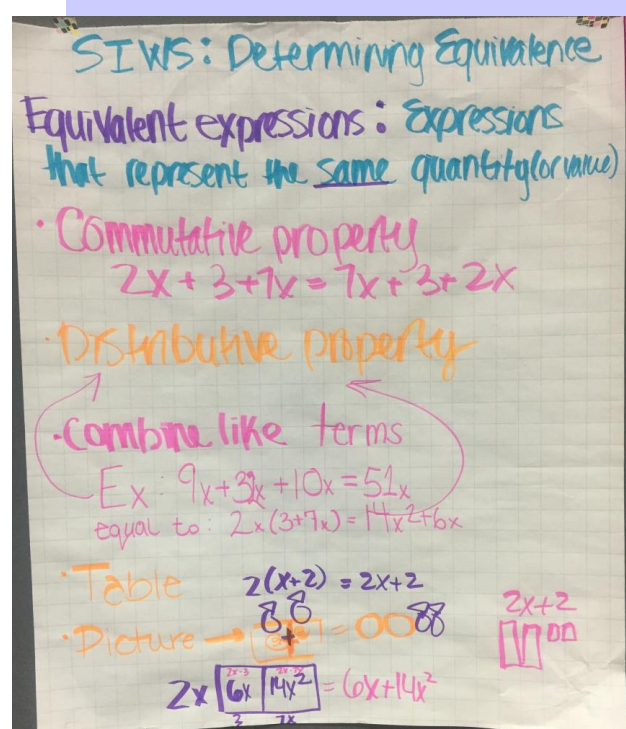 SIWS: Determining Equivalence
Equivalent expressions: Expressions
that represent the same quantity (or value)
· Commutative property
2x + 3 + 7x = 7x + 3 + 2x
· Distributive property
· Combine like terms
Ex: 9x + 32x + 10x = 51x
equal to: 2x(3+7x) = 14x²+6x
· Table
2(x+2) = 2x+2
2x+2
· Picture → =
2x 6x 14x² = 6x+14x²
3 7x